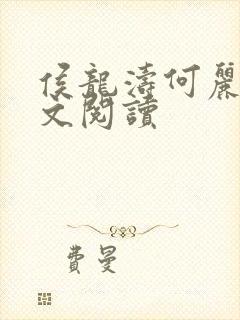 侯龍濤何麗
文閱讀
費曼